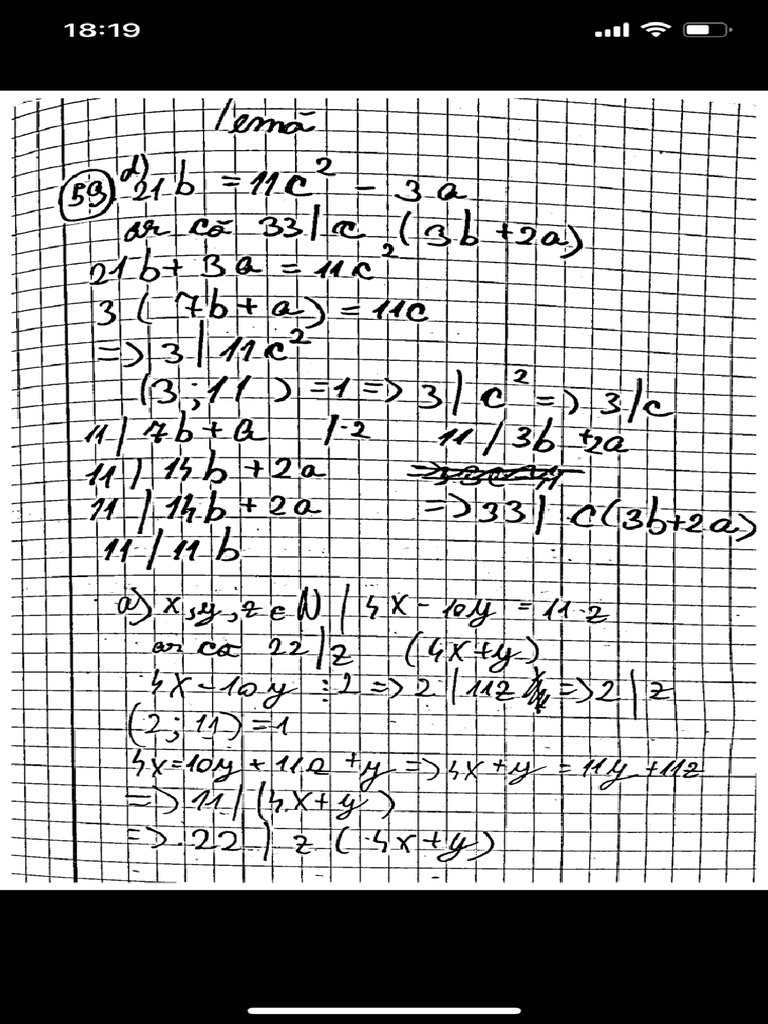 18:19
Temă
59 d) 21b = 11c² - 3a
ar că 33 | c (3b + 2a)
21b + 3a = 11c²
3 ( 7b + a ) = 11c
=> 3 | 11c²
(3 ; 11 ) = 1 => 3 | c² => 3 | c
11 / 7b + a /·2 11 / 3b + 2a
11 | 14b + 2a
11 / 14b + 2a => 33 | c(3b+2a)
11 / 11b
a) x, y, z ∈ N / 4x - 10y = 11·z
ar că 22 | z (4x+y)
4x - 10y ⋮ 2 => 2 | 11z => 2 | z
(2 ; 11) = 1
4x = 10y + 11a + y => 4x + y = 11y + 11z
=> 11 / (4x + y)
=> 22 | z ( 4x + y)